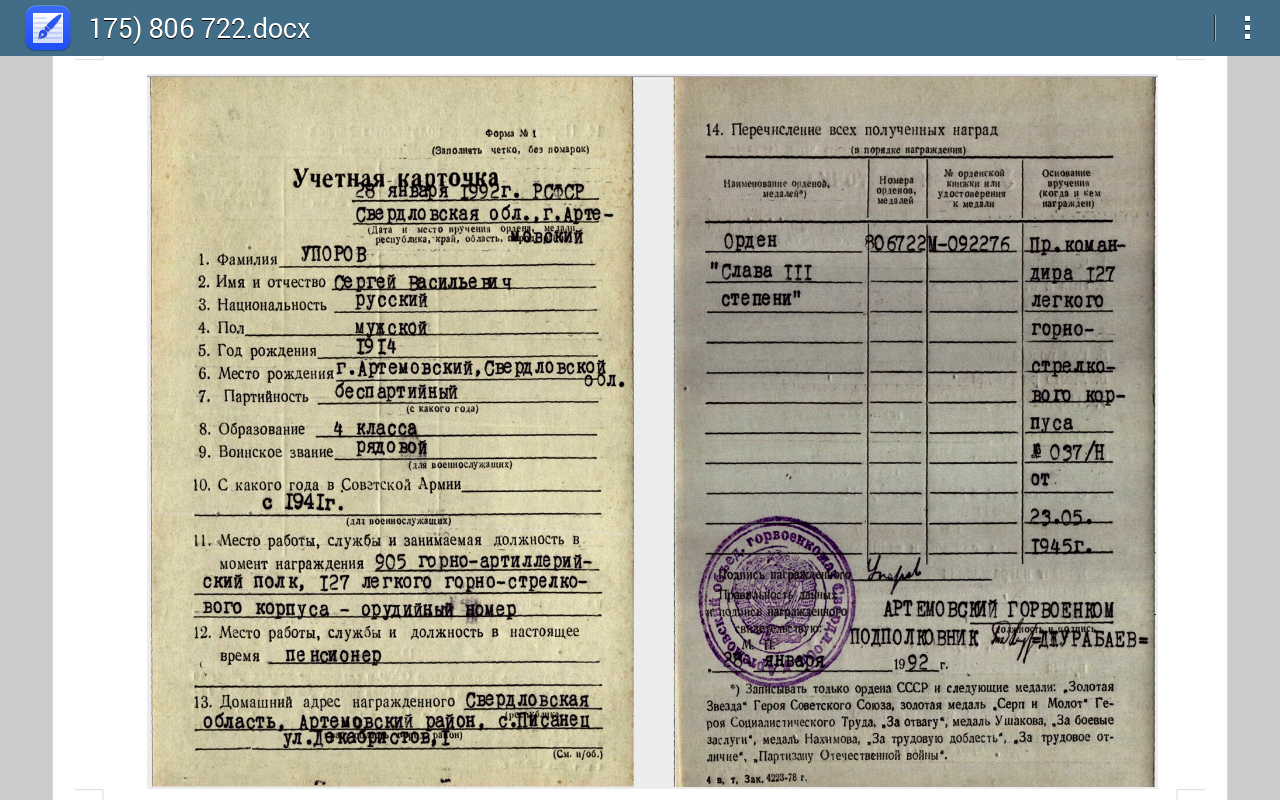 175) 806 722.docx
Форма № 1
(Заполнять четко, без помарок)
Учетная карточка
28 января 1992г. РСФСР
Свердловская обл., г.Арте-
мовский
(Дата и место вручения ордена, медали,
республика, край, область,
1. Фамилия УПОРОВ
2. Имя и отчество Сергей Васильевич
3. Национальность русский
4. Пол мужской
5. Год рождения 1914
6. Место рождения г.Артемовский, Свердловской
обл.
7. Партийность беспартийный
(с какого года)
8. Образование 4 класса
9. Воинское звание рядовой
(для военнослужащих)
10. С какого года в Советской Армии
с 1941г.
(для военнослужащих)
11. Место работы, службы и занимаемая должность в
момент награждения 905 горно-артиллерий-
ский полк, 127 легкого горно-стрелко-
вого корпуса - орудийный номер
12. Место работы, службы и должность в настоящее
время пенсионер
13. Домашний адрес награжденного Свердловская
область, Артемовский район, с.Писанец
ул.Декабристов,1
(См. н/об.)
14. Перечисление всех полученных наград
(в порядке награждения)
Наименование орденов, медалей*)
Номера орденов, медалей
№ орденской книжки или удостоверения к медали
Основание вручения (когда и кем награжден)
Орден 806722 М-092276 Пр.коман-
"Слава III дира 127
степени" легкого
горно-
стрелко-
вого кор-
пуса
№ 037/Н
от
23.05.
1945г.
Подпись награжденного Упоров
Правильность данных
и подписи награжденного
свидетельствую:
М. П.
АРТЕМОВСКИЙ ГОРВОЕНКОМ
должность и подпись
ПОДПОЛКОВНИК =ДЖУРАБАЕВ=
28 января 1992 г.
*) Записывать только ордена СССР и следующие медали: „Золотая
Звезда“ Героя Советского Союза, золотая медаль „Серп и Молот“ Ге-
роя Социалистического Труда, „За отвагу“, медаль Ушакова, „За боевые
заслуги“, медаль Нахимова, „За трудовую доблесть“, „За трудовое от-
личие“, „Партизану Отечественной войны“.
4 в, т, Зак. 4223-78 г.